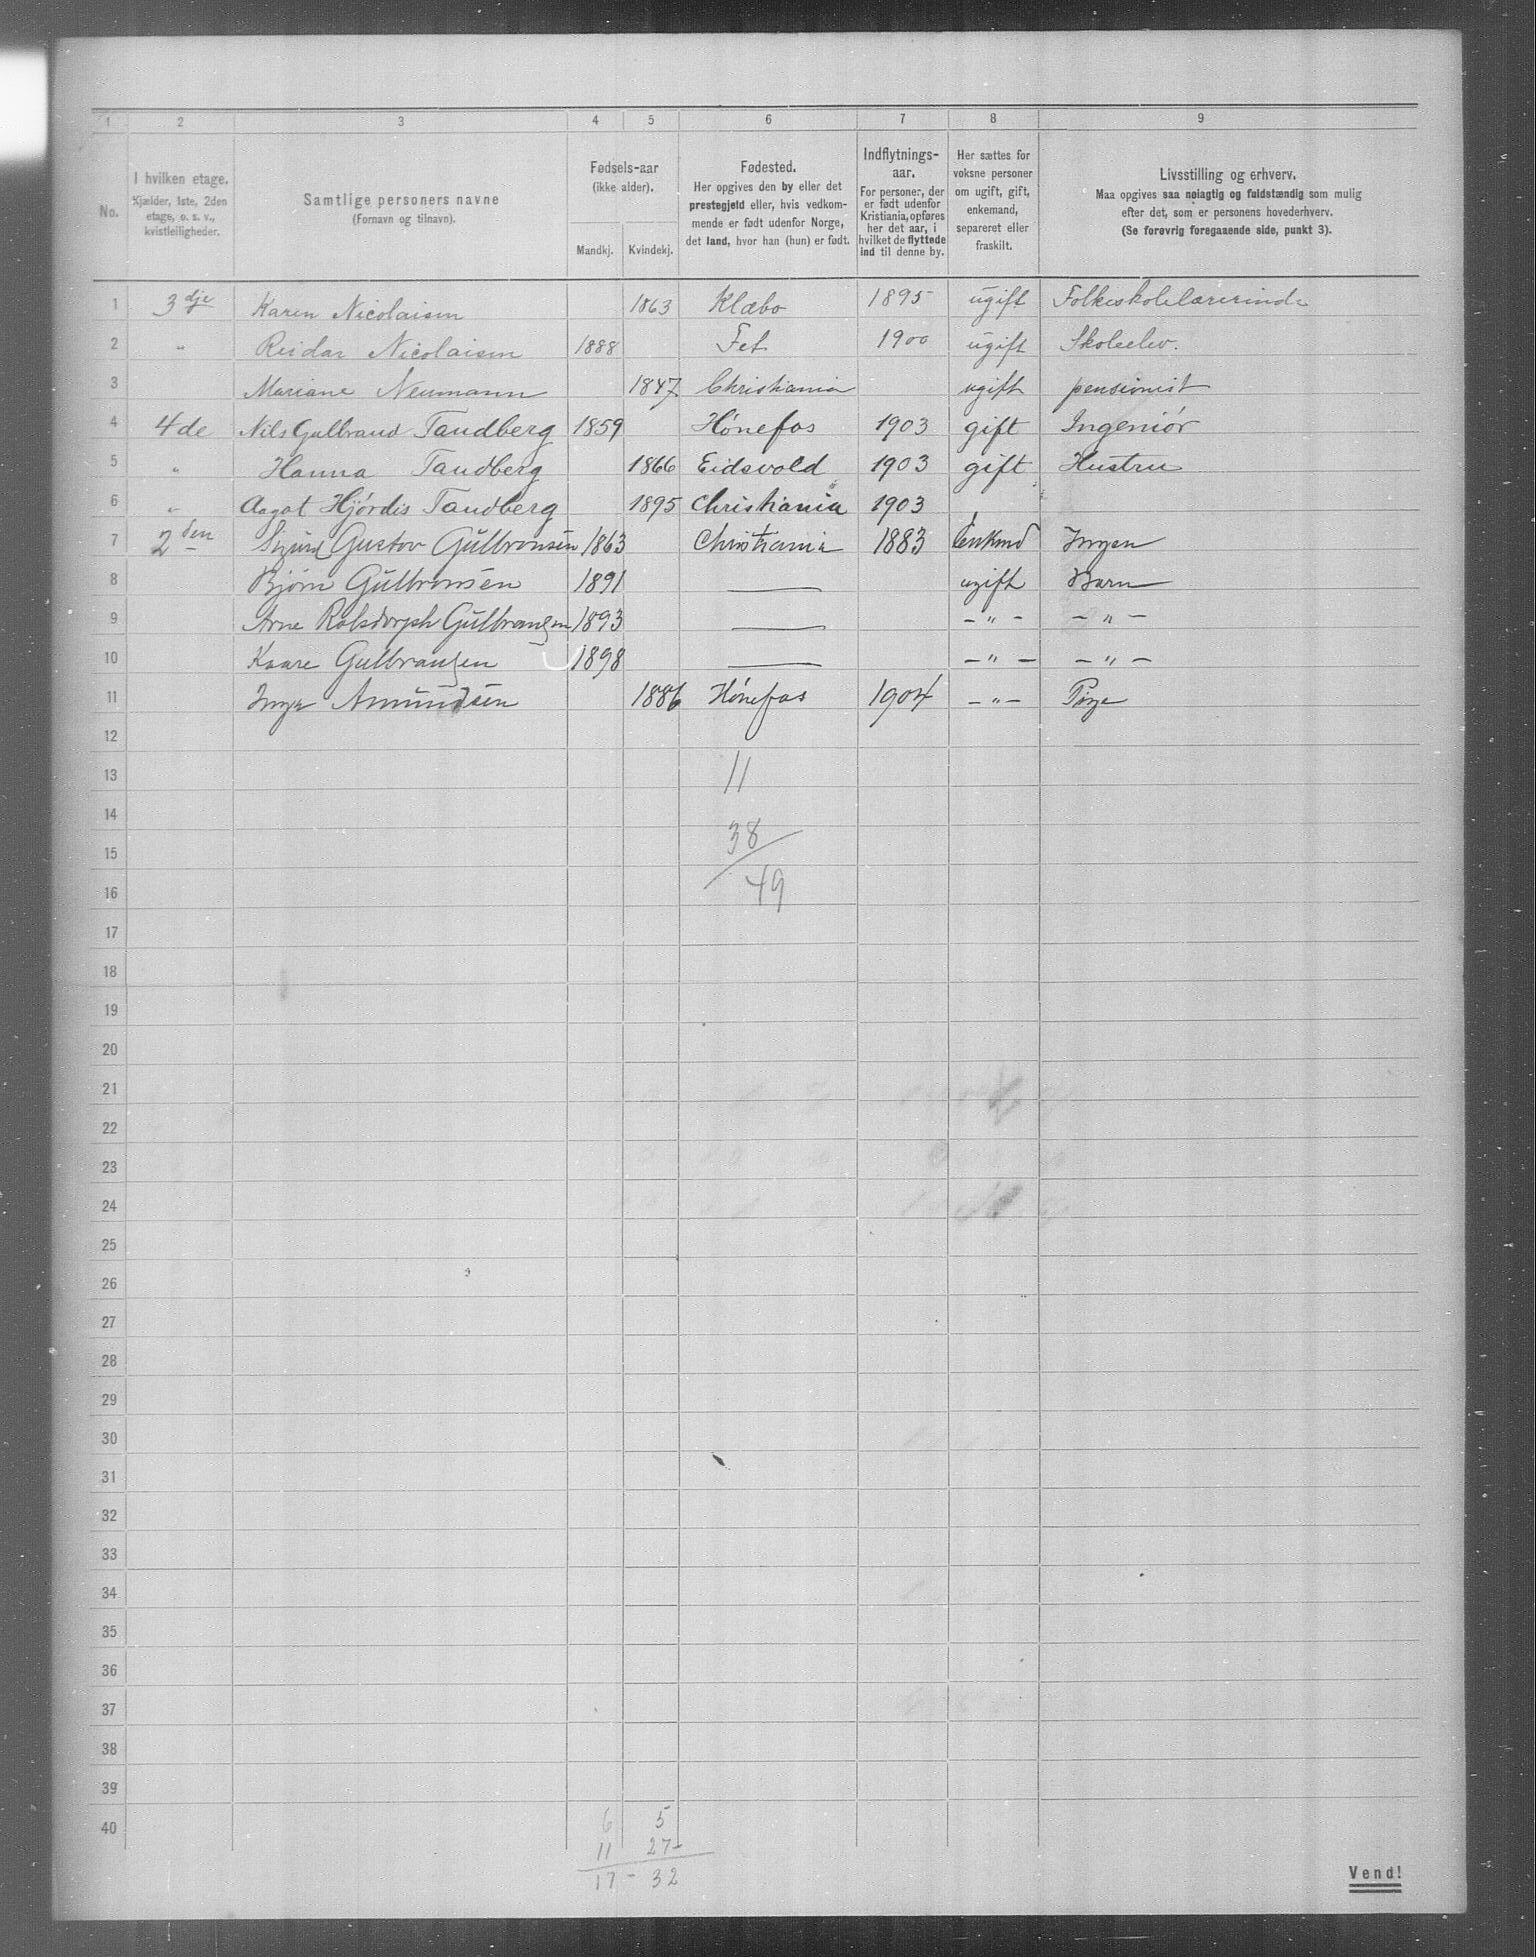 1 2 3 4 5 6 7 8 9
No.
I hvilken etage.
Kjælder, 1ste, 2den
etage, o. s. v.,
kvistleiligheder.
Samtlige personers navne
(Fornavn og tilnavn).
Fødsels-aar
(ikke alder).
Mandkj. Kvindekj.
Fødested.
Her opgives den by eller det
prestegjeld eller, hvis vedkom-
mende er født udenfor Norge,
det land, hvor han (hun) er født.
Indflytnings-
aar.
For personer, der
er født udenfor
Kristiania, opføres
her det aar, i
hvilket de flyttede
ind til denne by.
Her sættes for
voksne personer
om ugift, gift,
enkemand,
separeret eller
fraskilt.
Livsstilling og erhverv.
Maa opgives saa nøiagtig og fuldstændig som mulig
efter det, som er personens hovederhverv.
(Se forøvrig foregaaende side, punkt 3).
1 3dje Karen Nicolaisen 1863 Klæbo 1895 ugift Folkeskolelærerinde
2 " Reidar Nicolaisen 1888 Fet 1900 ugift Skoleelev.
3 Mariane Neumann 1847 Christiania ugift pensionist
4 4de Nils Gulbrand Tandberg 1859 Hónefos 1903 gift Ingeniór
5 " Hanna Tandberg 1866 Eidsvold 1903 gift Hustru
6 " Aagot Hjórdis Tandberg 1895 Christiania 1903
7 2den Sigurd Gustav Gulbransen 1863 Christiania 1883 Enkmd Ingen
8 Bjørn Gulbransen 1891 — ugift Barn
9 Arne Rolsdorph Gulbransen 1893 — - " - - " -
10 Kaare Gulbransen 1898 — - " - - " -
11 Inga Amundsen 1886 Hónefos 1904 - " - Pige
12
13 11
14
15 38
16 49
17
18
19
20
21
22
23
24
25
26
27
28
29
30
31
32
33
34
35
36
37
38
39
40 6 5
11 27-
17 - 32
Vend!